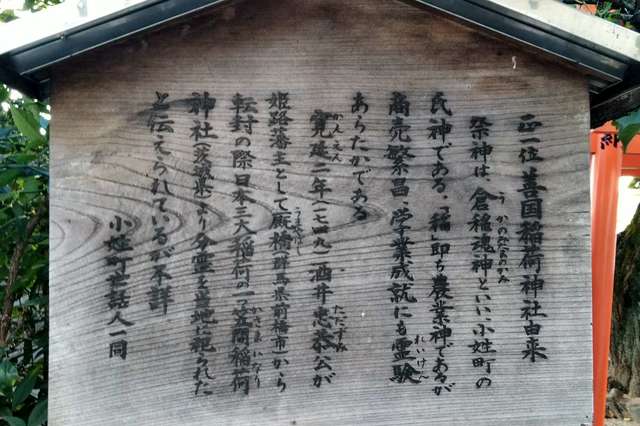 正一位 善国稲荷神社由来
祭神は、倉稲魂神といい小姓町の
うかのみたまのかみ
氏神である。「稲」即ち農業神であるが
商売繁昌、学業成就にも霊験
れいけん
あらたかである
寛延二年(一七四九)酒井忠恭公が
かんえん
ただずみ
姫路藩主として厩橋(群馬県前橋市)から
うまやばし
転封の際日本三大稲荷の一つ笠間稲荷
かさまいなり
神社(茨城県)より分霊を当地に祀られた
と伝えられているが不詳
小姓町世話人一同